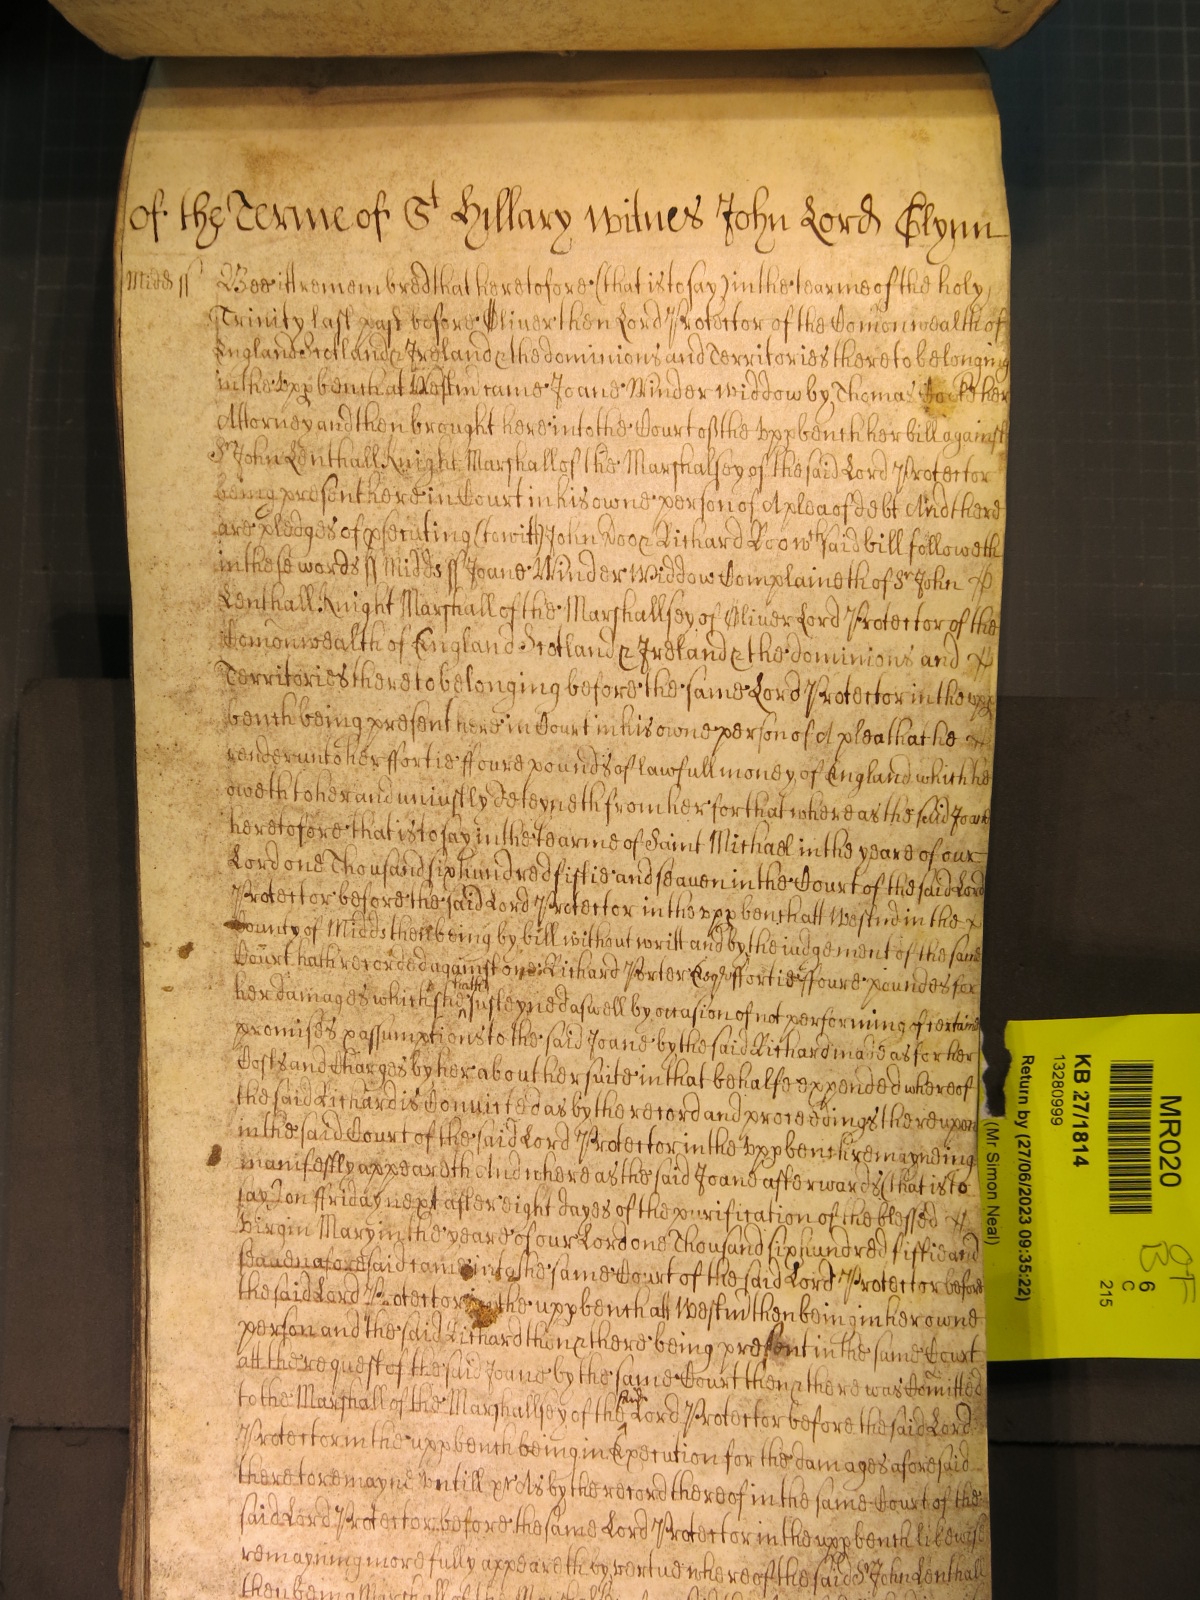 of the Terme of St Hillary witnes John Lord Glynn
Midds ss Bee itt remembred that heretofore (that is to say) in the tearme of the holy
Trinity last past before Oliver then Lord Protector of the Comonwealth of
England Scotland & Ireland & the dominions and Territories thereto belonging
in the uppbench at Westm came Joane Winder widdow by Thomas Cocke her
Attorney and then brought here into the Court of the uppbench her bill against
Sr John Lenthall Knight Marshall of the Marshalsey of the said Lord Protector
being present here in Court in his owne person of A plea of debt And there
are pledges of psecuting (to witt) John Doo & Richard Roo wch said bill followeth
in these words ss Midds ss Joane Winder widdow Complaineth of Sr John
Lenthall Knight Marshall of the Marshallsey of Oliver Lord Protector of the
Comonwealth of England Scotland & Ireland & the dominions and
Territories thereto belonging before the same Lord Protector in the upp
bench being present here in Court in his owne person of A plea that he
render unto her ffortie ffoure pounds of lawfull money of England which he
oweth to her and uniustly deteyneth from her for that whereas the said Joane
heretofore that is to say in the tearme of Saint Michael in the yeare of our
Lord one Thousand six hundred fiftie and seaven in the Court of the said Lord
Protector before the said Lord Protector in the uppbench att Westm in the
County of Midds then being by bill without writt and by the iudgement of the same
Court hath recorded against one Richard Porter Esqr ffortie ffoure poundes for
her damages which she hath susteyned aswell by occasion of not performing of certaine
promises & assumptions to the said Joane by the said Richard made as for her
Costs and Charges by her about her suite in that behalfe expended whereof
the said Richard is Convicted as by the record and proceedings thereupon
in the said Court of the said Lord Protector in the uppbench remayneing
manifestly appeareth And whereas the said Joane afterwards (that is to
say) on ffriday next after eight dayes of the purification of the blessed
Virgin Mary in the yeare of our Lord one Thousand six hundred fiftie and
seaven aforesaid came into the same Court of the said Lord Protector before
the said Lord Protector in the uppbench att Westm then being in her owne
person and the said Richard then & there being present in the same Court
att the request of the said Joane by the same Court then & there was Comitted
to the Marshall of the Marshallsey of the said Lord Protector before the said Lord
Protector in the uppbench being in Execution for the damages aforesaid
there to remayne untill &c As by the record thereof in the same Court of the
said Lord Protector before the same Lord Protector in the uppbench likewise
remayning more fully appeareth by vertue whereof the said Sr John Lenthall
then being Marshall of the
MR020
KB 27/1814
13280999
Return by (27/06/2023 09:35:22)
(Mr Simon Neal)
6
C
215